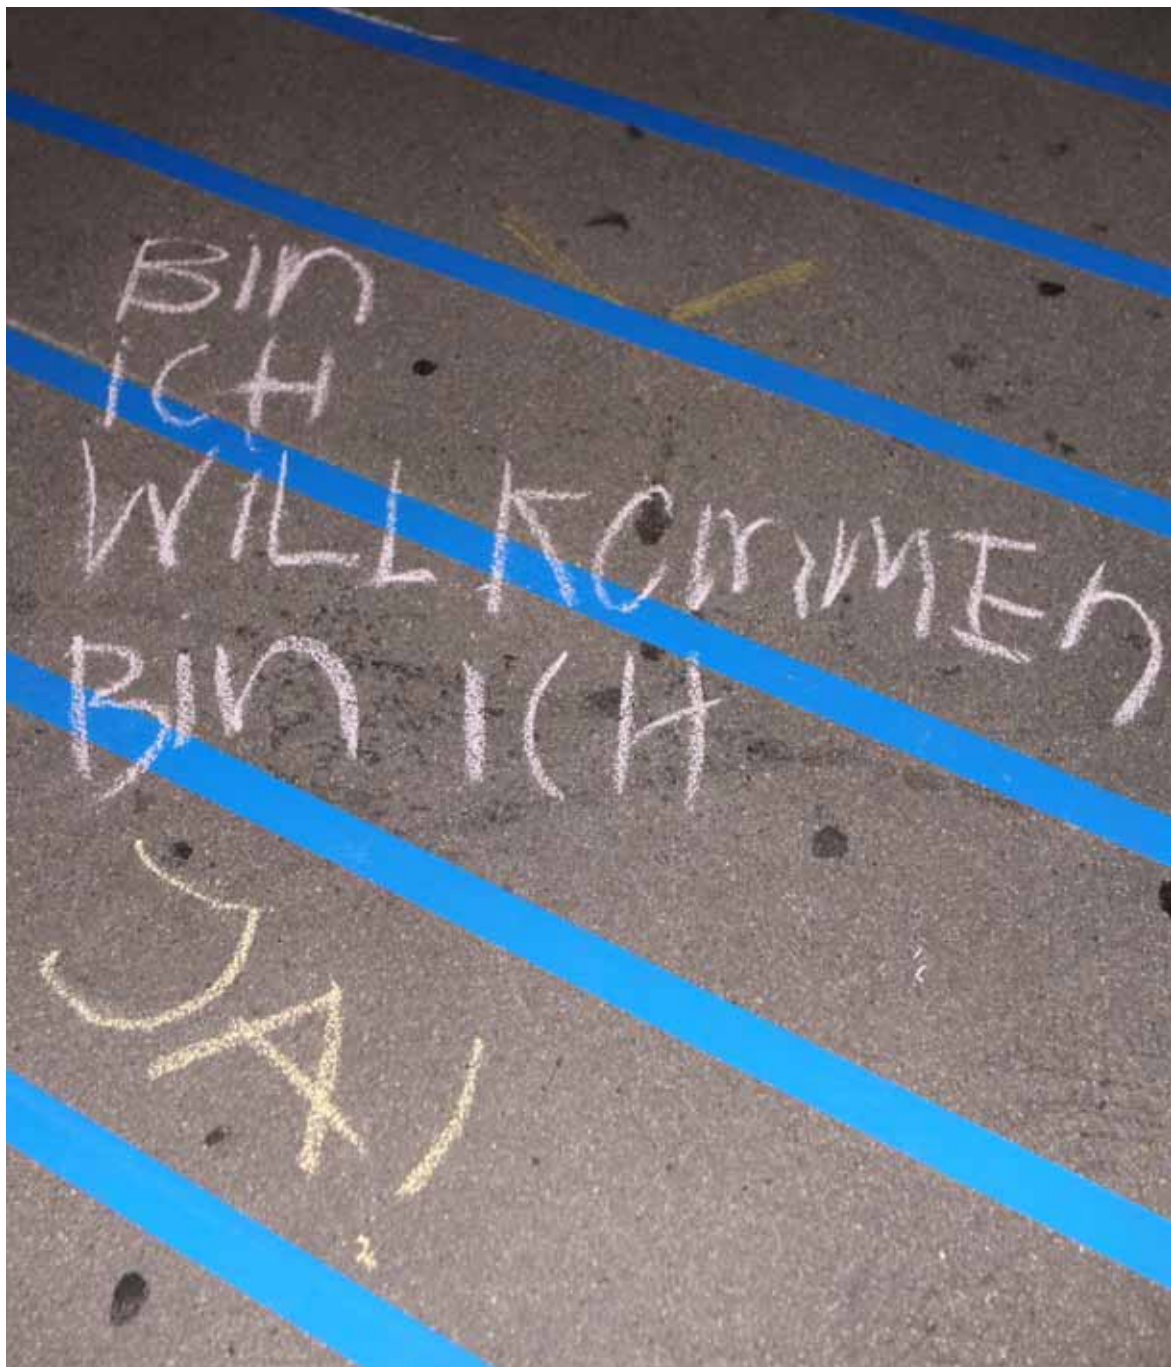 Bin
iCH
WiLLKOMMEn
Bin ICH
JA!